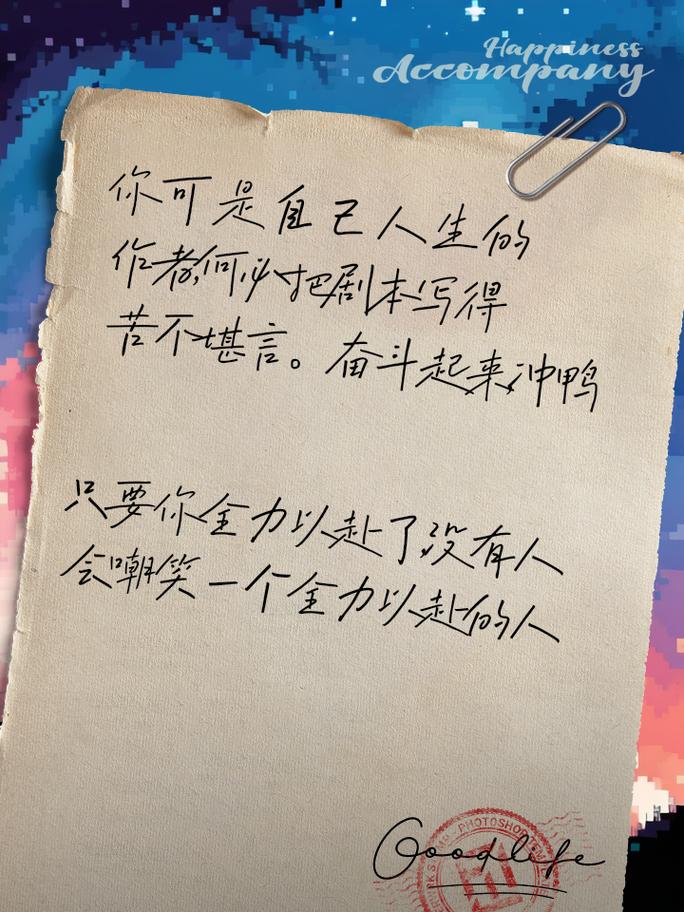 Happiness
Accompany
你可是自己人生的
作者,何必把剧本写得
苦不堪言。奋斗起来冲鸭
只要你全力以赴了没有人
会嘲笑一个全力以赴的人
PHOTOSHOP
Goodlife